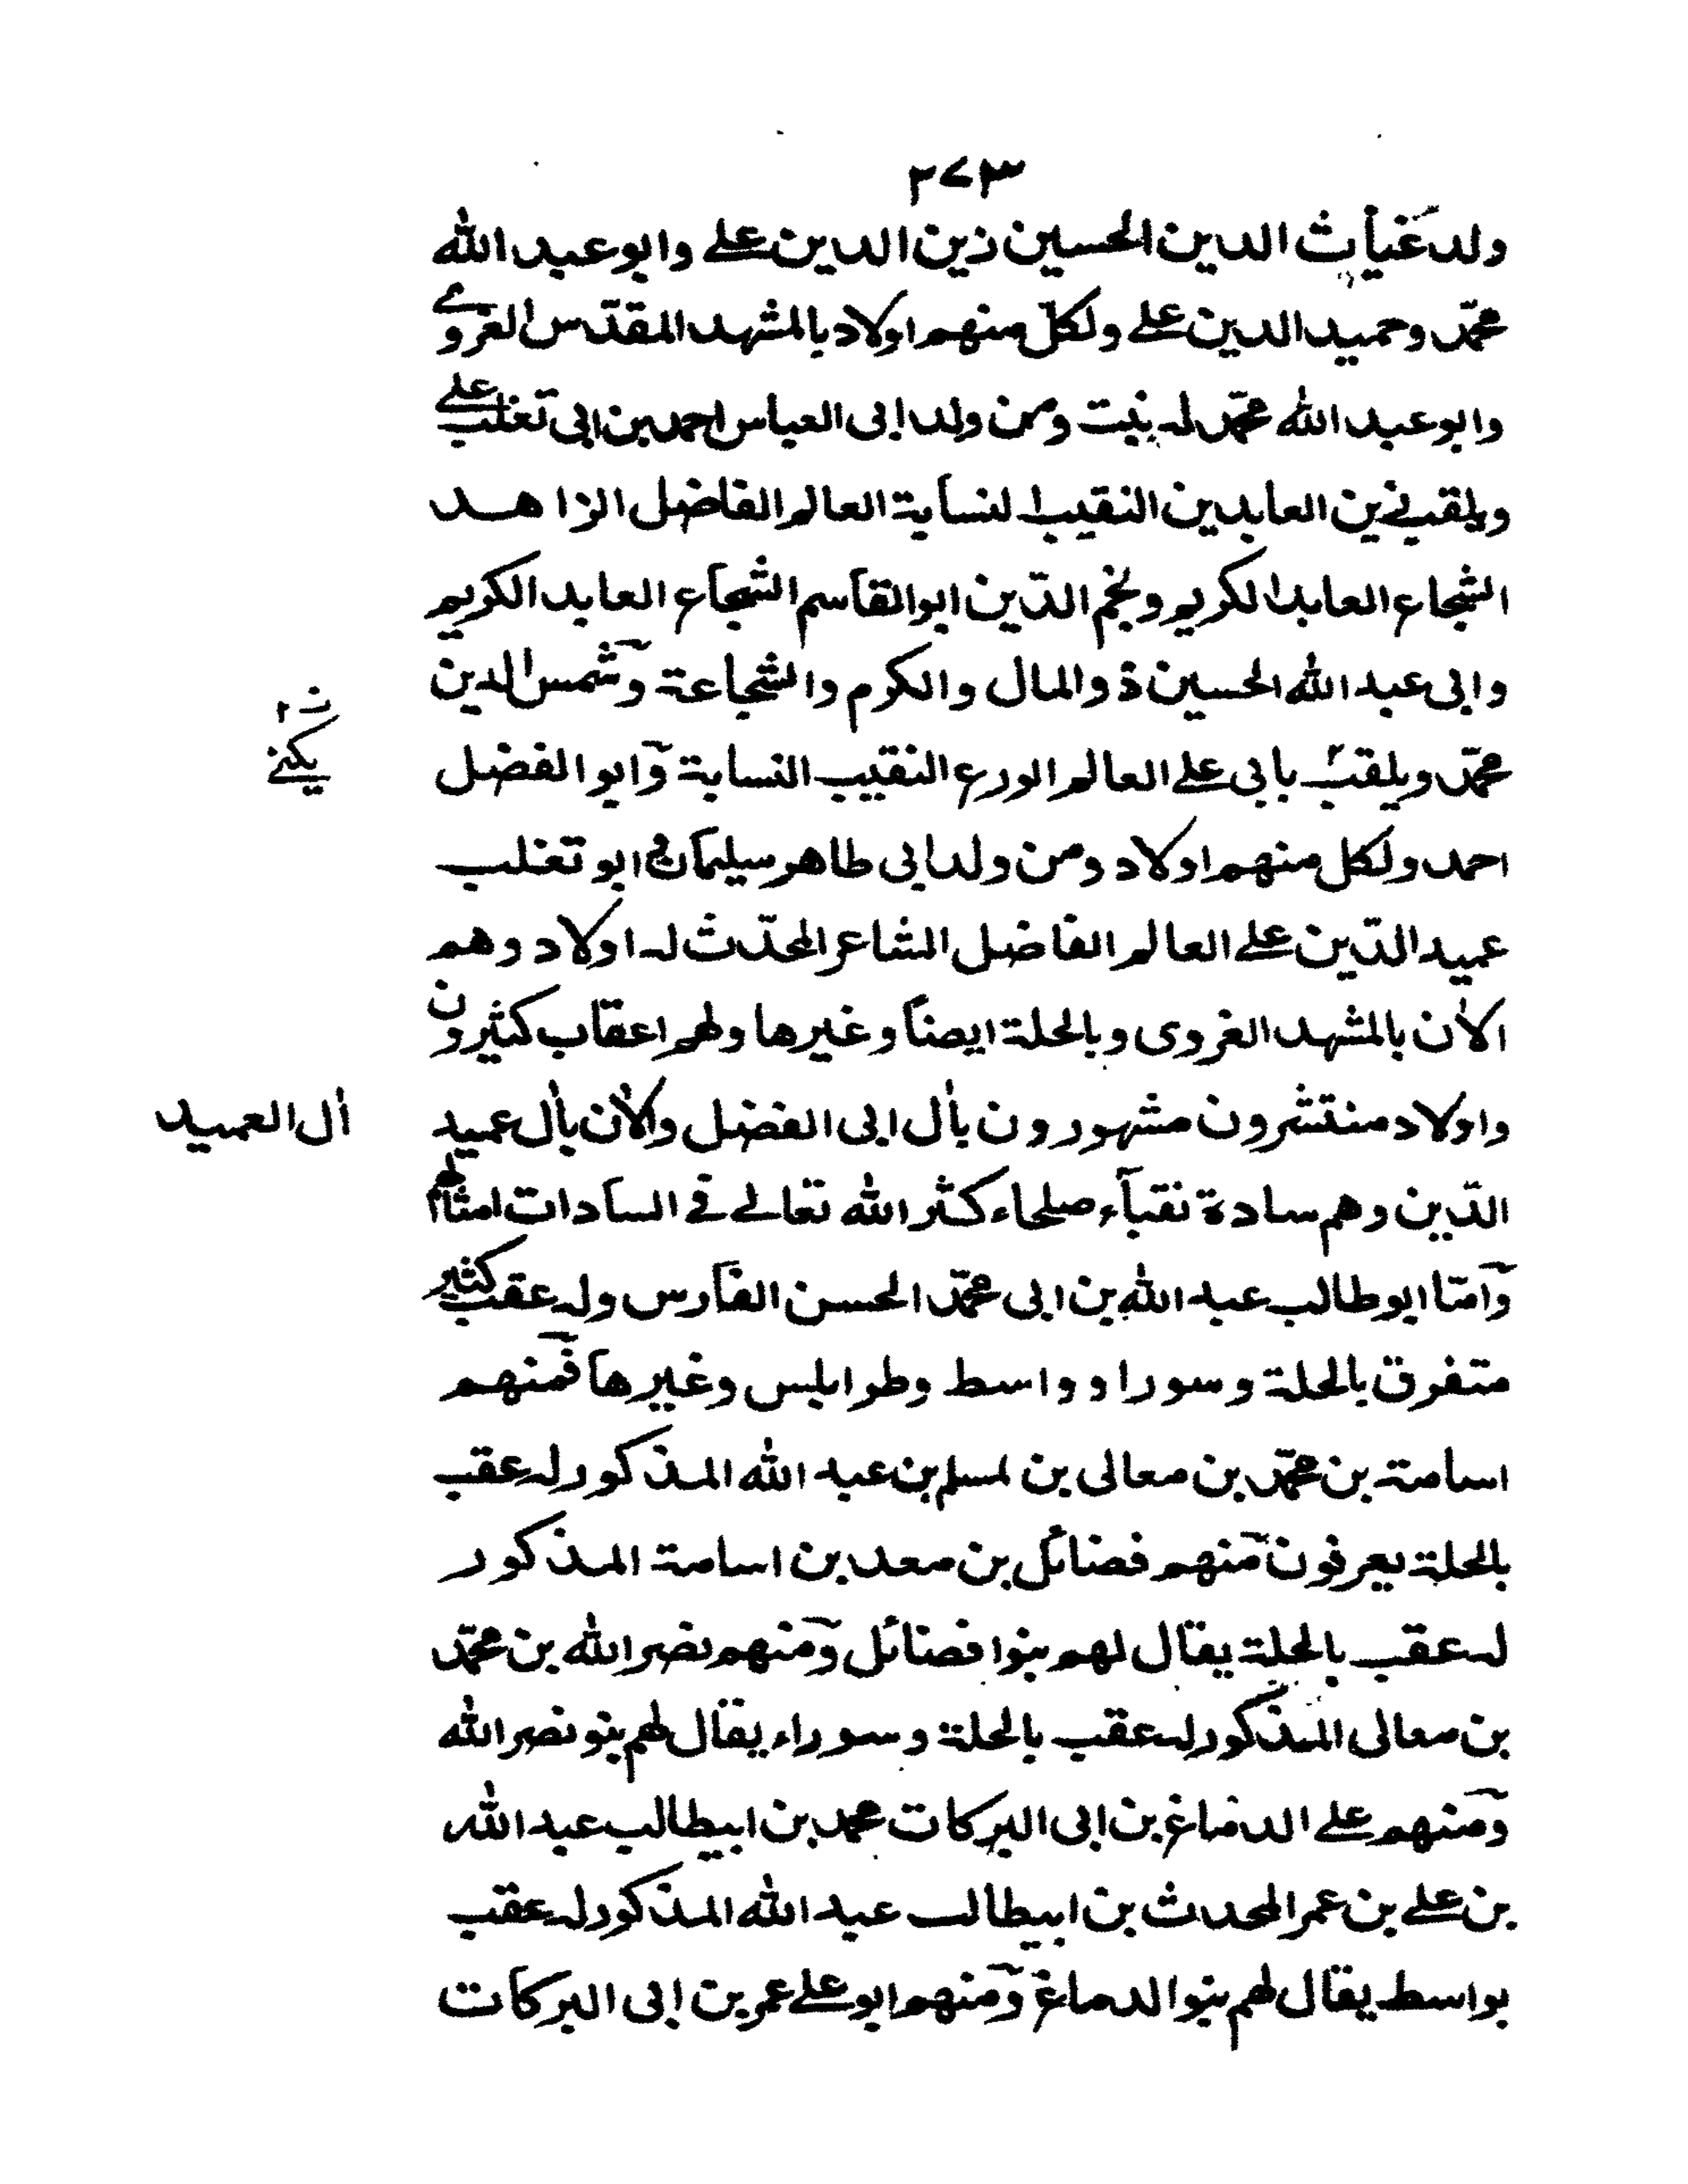 ٢٧٣
ولد غياث الدين الحسين زين الدين علي وابو عبد الله
محمّد وحميد الدين علي ولكلّ منهم اولاد بالمشهد المقدّس الغروي
وابو عبد الله محمّد له بنت ومن ولد ابى العباس احمد بن ابى تغلب علي
ويلقب زين العابدين النقيب النسابة العالم الفاضل الزاهد
الشجاع العابد الكريم ونجم الدّين ابو القاسم الشجاع العابد الكريم
وابى عبد الله الحسين ذو المال والكرم والشجاعة وشمس الدين
محمّد ويلقب بابى علي العالم الورع النقيب النسابة وابو الفضل
يكنے
احمد ولكل منهم اولاد ومن ولد ابى طاهر سليمان ابو تغلب
عميد الدّين علي العالم الفاضل الشاعر المحدّث له اولاد وهم
الأن بالمشهد الغروى وبالحلة ايضاً وغيرها ولهم اعقاب كثيرون
واولاد منتشرون مشهورون بأل ابى الفضل والأن بأل عميد
أل العميد
الدّين وهم سادة نقبآء صلحاء كثر الله تعالے فى السادات امثالهم
وامّا ابو طالب عبد الله بن ابى محمّد الحسن الفارس وله عقب كثير
متفرق بالحلة وسورا وواسط وطرابلس وغيرها فمنهم
اسامة بن محمّد بن معالى بن مسلم بن عبد الله المذكور له عقب
بالحلة يعرفون منهم فضائل بن معد بن اسامة المذكور
له عقب بالحلة يقال لهم بنوا فضائل ومنهم نصر الله بن محمّد
بن معالى المذكور له عقب بالحلة وسوراء يقال لهم بنو نصر الله
ومنهم علي الدماغ بن ابى البركات محمد بن ابيطالب عبد الله
بن علي بن عمر المحدث بن ابيطالب عبد الله المذكور له عقب
بواسط يقال لهم بنوا الدماغ ومنهم ابو علي عمر بن ابى البركات